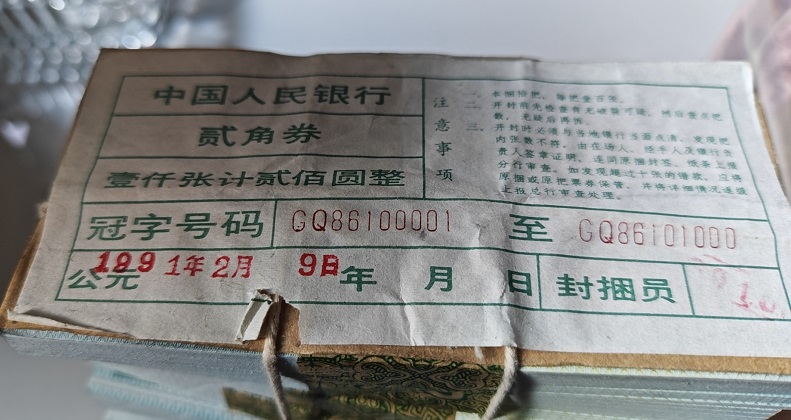 中国人民银行
贰角券
壹仟张计贰佰圆整
注意事项
一、本捆拾把，每把壹百张。
二、开封前先检查有无破裂可疑，然后重点把
数，无疑后再拆。
三、开封时必须与当地银行当面点清，发现把
内张数不符，由在场人、经手人及银行负
责人签章证明，连同原捆封签、纸条上报
分行审查。如发现超过十张的错款，应将
原捆或原把票券保管，并将详细情况逐级
上报总行审查处理。
冠字号码 GQ86100001 至 GQ86101000
公元 1991年2月 9日 年 月 日 封捆员